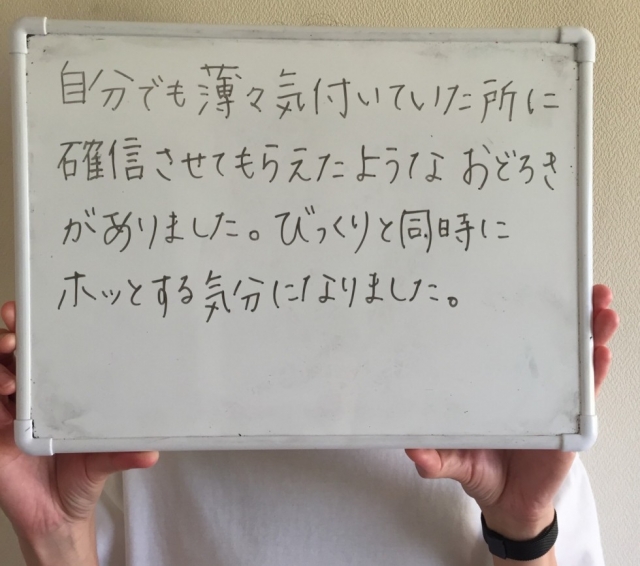 自分でも薄々気付いていた所に
確信させてもらえたような おどろき
がありました。びっくりと同時に
ホッとする気分になりました。